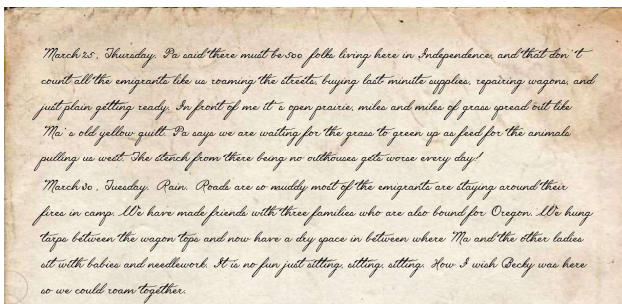 March 25, Thursday. Pa said there must be 500 folks living here in Independence, and that don't
count all the emigrants like us roaming the streets, buying last-minute supplies, repairing wagons, and
just plain getting ready. In front of me it's open prairie, miles and miles of grass spread out like
Ma's old yellow quilt. Pa says we are waiting for the grass to green up as feed for the animals
pulling us west. The stench from there being no outhouses gets worse every day!
March 30, Tuesday. Rain. Roads are so muddy most of the emigrants are staying around their
fires in camp. We have made friends with three families who are also bound for Oregon. We hung
tarps between the wagon tops and now have a dry space in between where Ma and the other ladies
sit with babies and needlework. It is no fun just sitting, sitting, sitting. How I wish Becky was here
so we could roam together.